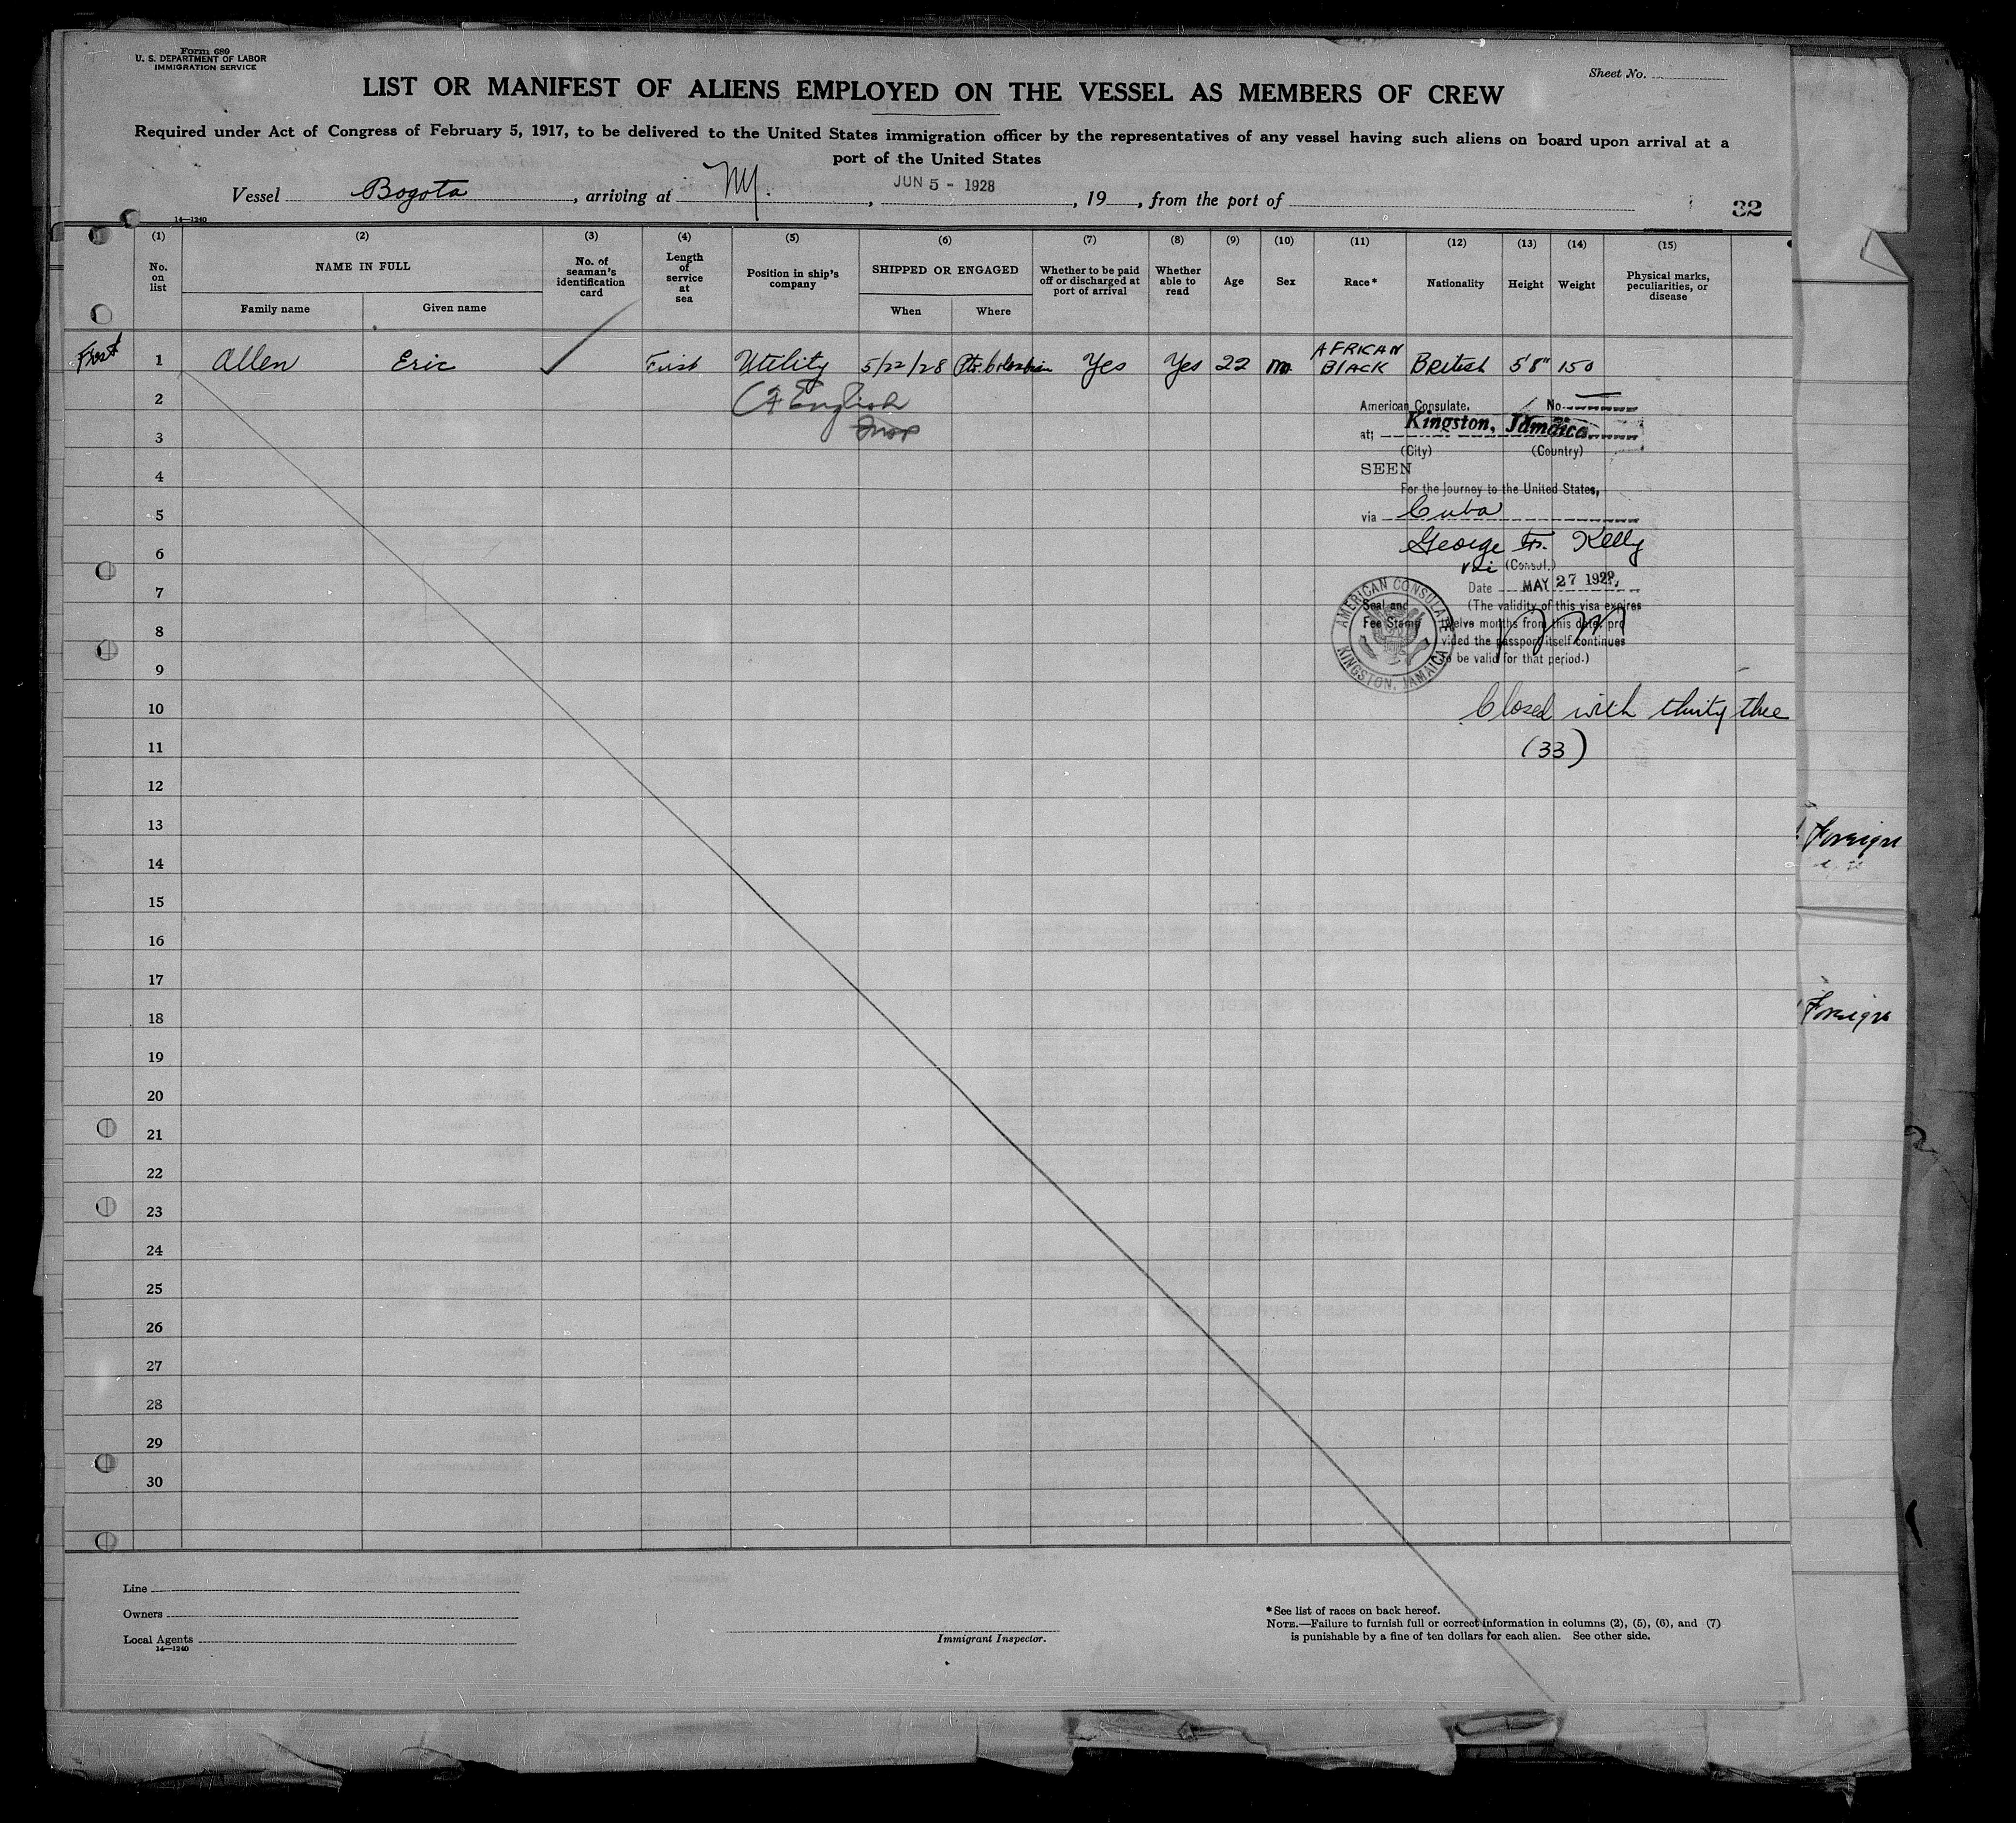 Form 680
U. S. DEPARTMENT OF LABOR
IMMIGRATION SERVICE
Sheet No.
LIST OR MANIFEST OF ALIENS EMPLOYED ON THE VESSEL AS MEMBERS OF CREW
Required under Act of Congress of February 5, 1917, to be delivered to the United States immigration officer by the representatives of any vessel having such aliens on board upon arrival at a
port of the United States
Vessel Bogota, arriving at NY., JUN 5 - 1928, 19, from the port of
32
14—1240
(1) (2) (3) (4) (5) (6) (7) (8) (9) (10) (11) (12) (13) (14) (15)
No. on list
NAME IN FULL
Family name
Given name
No. of seaman's identification card
Length of service at sea
Position in ship's company
SHIPPED OR ENGAGED
When
Where
Whether to be paid off or discharged at port of arrival
Whether able to read
Age
Sex
Race*
Nationality
Height
Weight
Physical marks, peculiarities, or disease
First 1 Allen Eric First Utility 5/22/28 Yes Yes 22 m AFRICAN BLACK British 5'8" 150
2 English
3
4
5
6
7
8
9
10
11
12
13
14
15
16
17
18
19
20
21
22
23
24
25
26
27
28
29
30
American Consulate. No.
at; Kingston, Jamaica
(City) (Country)
SEEN
For the journey to the United States,
via Cuba
George Kelly
(Consul.)
Date MAY 27 1928.
Seal and
Fee Stamp
AMERICAN CONSULATE
KINGSTON, JAMAICA
(The validity of this visa expires
twelve months from this date, pro
vided the passport itself continues
to be valid for that period.)
Closed with thirty three
(33)
Foreign
Foreign
Line
Owners
Local Agents
14—1240
Immigrant Inspector.
*See list of races on back hereof.
NOTE.—Failure to furnish full or correct information in columns (2), (5), (6), and (7)
is punishable by a fine of ten dollars for each alien. See other side.